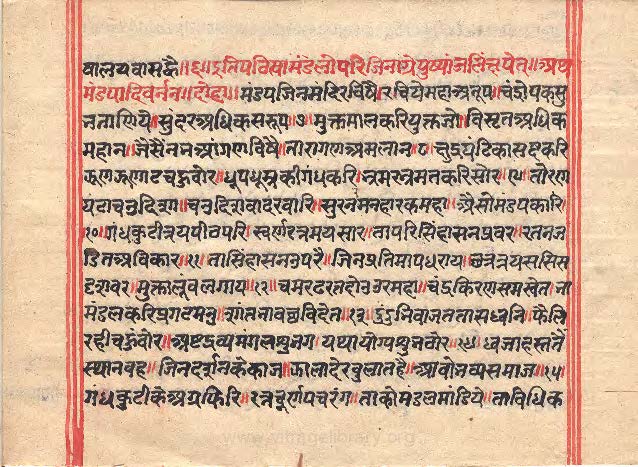 वालयवासद्वै॥६॥इतिपविसामंडलोपरिजिनाग्रेपुष्पांजलिंक्षिपेत्॥अथ
मंडपादिवर्नन॥दोहा॥मंडपजिनमंदिरविषै॥रचियेमहाअनूप॥चंद्रोपकसु
नतांणिये॥सुंदरअधिकसरूप॥७॥मुक्तमालकरियुक्तजो॥विस्तृतअधिक
महान॥जैसैनभअंगणविषै॥तारागणअमलान॥८॥क्षुद्रघंटिकासष्टकरि
रुणरुणाटचहुवोर॥धूपधूम्रकीगंधकरि॥भ्रमरभ्रमतकरिसोर॥९॥तोरण
घटाचहुदिशा॥चहुदिशवादरवारि॥सुरनरमनहारकमहा॥ऐसोमंडपकारि॥
१०॥गंधकुटीत्रयपीवपरि॥स्वर्णरत्नमयसार॥तापरिसिंहासनप्रवर॥रतनन
डितअविकार॥११॥तासिंहासनउपरै॥जिनप्रतिमापधराय॥छत्रत्रयससिस
दृशवर॥मुक्तालूवलगाय॥१२॥चमरढरतदोउउरमहा॥चंद्रकिरणसमस्वेत॥भा
मंडलकरिप्रगटमनु॥शांतनावछविदेत॥१३॥दुंदुभिवाजततासधुनि॥फैलि
रहीचहुंवोर॥अष्टद्रव्यमंगलसुभग॥यथायोग्यसुनवोर॥१४॥ध्वजाहस्तनैं
स्थानवहु॥जिनदर्शनकेकाज॥फालादेरबुलातहै॥आवोभव्यसमाज॥१५॥
गंधकुटीकेअग्रफिरि॥रत्नचूर्णपचरंग॥ताकोमंडलमांडिये॥ताविधिक
www.vitragelibrary.org